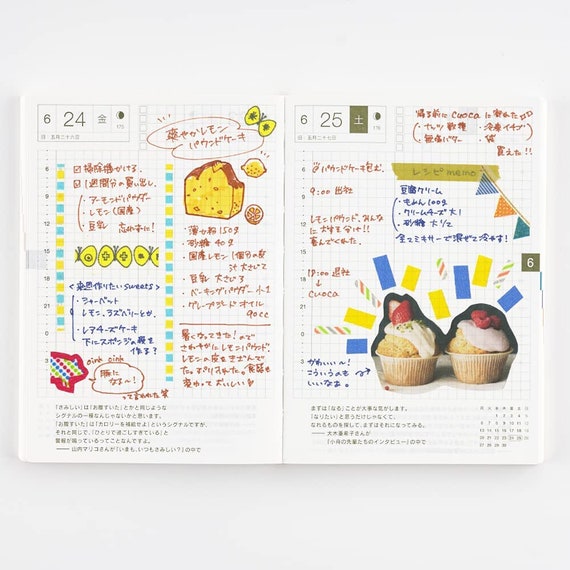 6 24 金
175
旧:五月二十六日
爽やかレモン
パウンドケーキ
掃除機かける。
1週間分の買い出し。
・アーモンドパウダー
・レモン(国産)
・豆乳 忘れずに!
<来週作りたいsweets>
・シャーベット
レモン、ラズベリーとか。
・レアチーズケーキ
下にスポンジの残を
作る?
oink oink
豚に
なる〜!
って言われた 笑
・薄力粉 150g
・砂糖 40g
・国産レモン 1個分の皮
汁 大さじ2
・豆乳 大さじ3
・ベーキングパウダー 小1
・グレープシードオイル
90cc
暑くなってきた!ので
さわやかにレモンパウンド。
レモンの皮もきざんで
変わっておいしい
9
12
15
18
21
0
3
「さみしい」は「お腹すいた」とかと同じような
シグナルの一種なんじゃないかと思います。
「お腹すいた」は「カロリーを補給せよ」というシグナルですが、
それと同じで、「ひとりで過ごしすぎている」と
警報が鳴っているってことなんですよ。
——山内マリコさんが「いまも、いつもさみしい?」の中で
6 25 土
176
旧:五月二十七日
帰る前に cuoca に寄れた
・ナッツ数種 ・冷凍イチゴ
・無塩バター ・袋
買えた!!
パウンドケーキ包む
9:00 出社
レモンパウンド、みんな
に大好評!!
喜んでくれた。
18:00 退社
↓
cuoca
レシピ memo
豆腐クリーム
・もめん 100g
・クリームチーズ 大1
・砂糖 大1/2
全てミキサーで混ぜて冷やす!
6
かわいい〜!
こういうのも
いいなぁ。
まずは「なる」ことが大事な気がします。
「なりたい」と思うだけじゃなくて、
なれるものを探して、まずはそれになってみる。
——大木亜希子さんが
「小舟の先輩たちのインタビュー」の中で
日 月 火 水 木 金 土
1 2 3 4
5 6 7 8 9 10 11
12 13 14 15 16 17 18
19 20 21 22 23 24 25
26 27 28 29 30